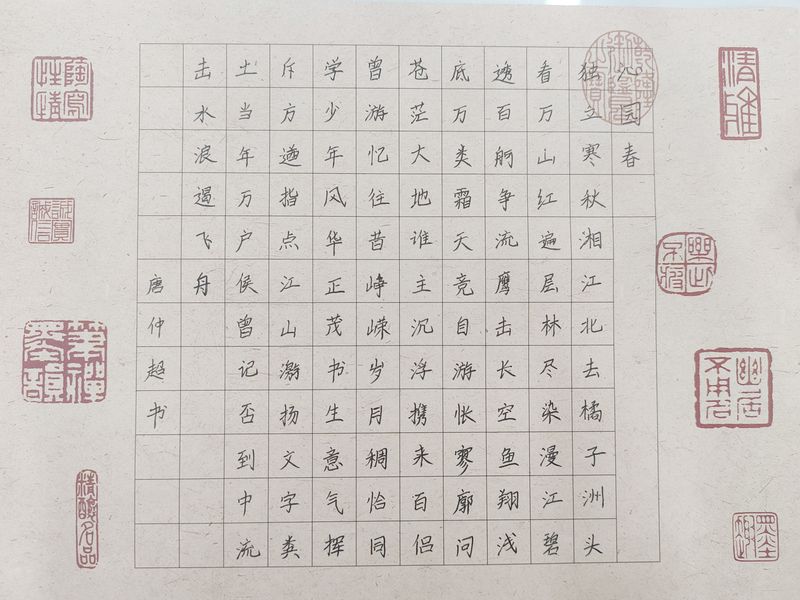 沁园春
独立寒秋湘江北去橘子洲头
看万山红遍层林尽染漫江碧
透百舸争流鹰击长空鱼翔浅
底万类霜天竞自游怅寥廓问
苍茫大地谁主沉浮携来百侣
曾游忆往昔峥嵘岁月稠恰同
学少年风华正茂书生意气挥
斥方遒指点江山激扬文字粪
土当年万户侯曾记否到中流
击水浪遏飞舟
唐仲超书
清雅
幽居不用名
誠實誠信